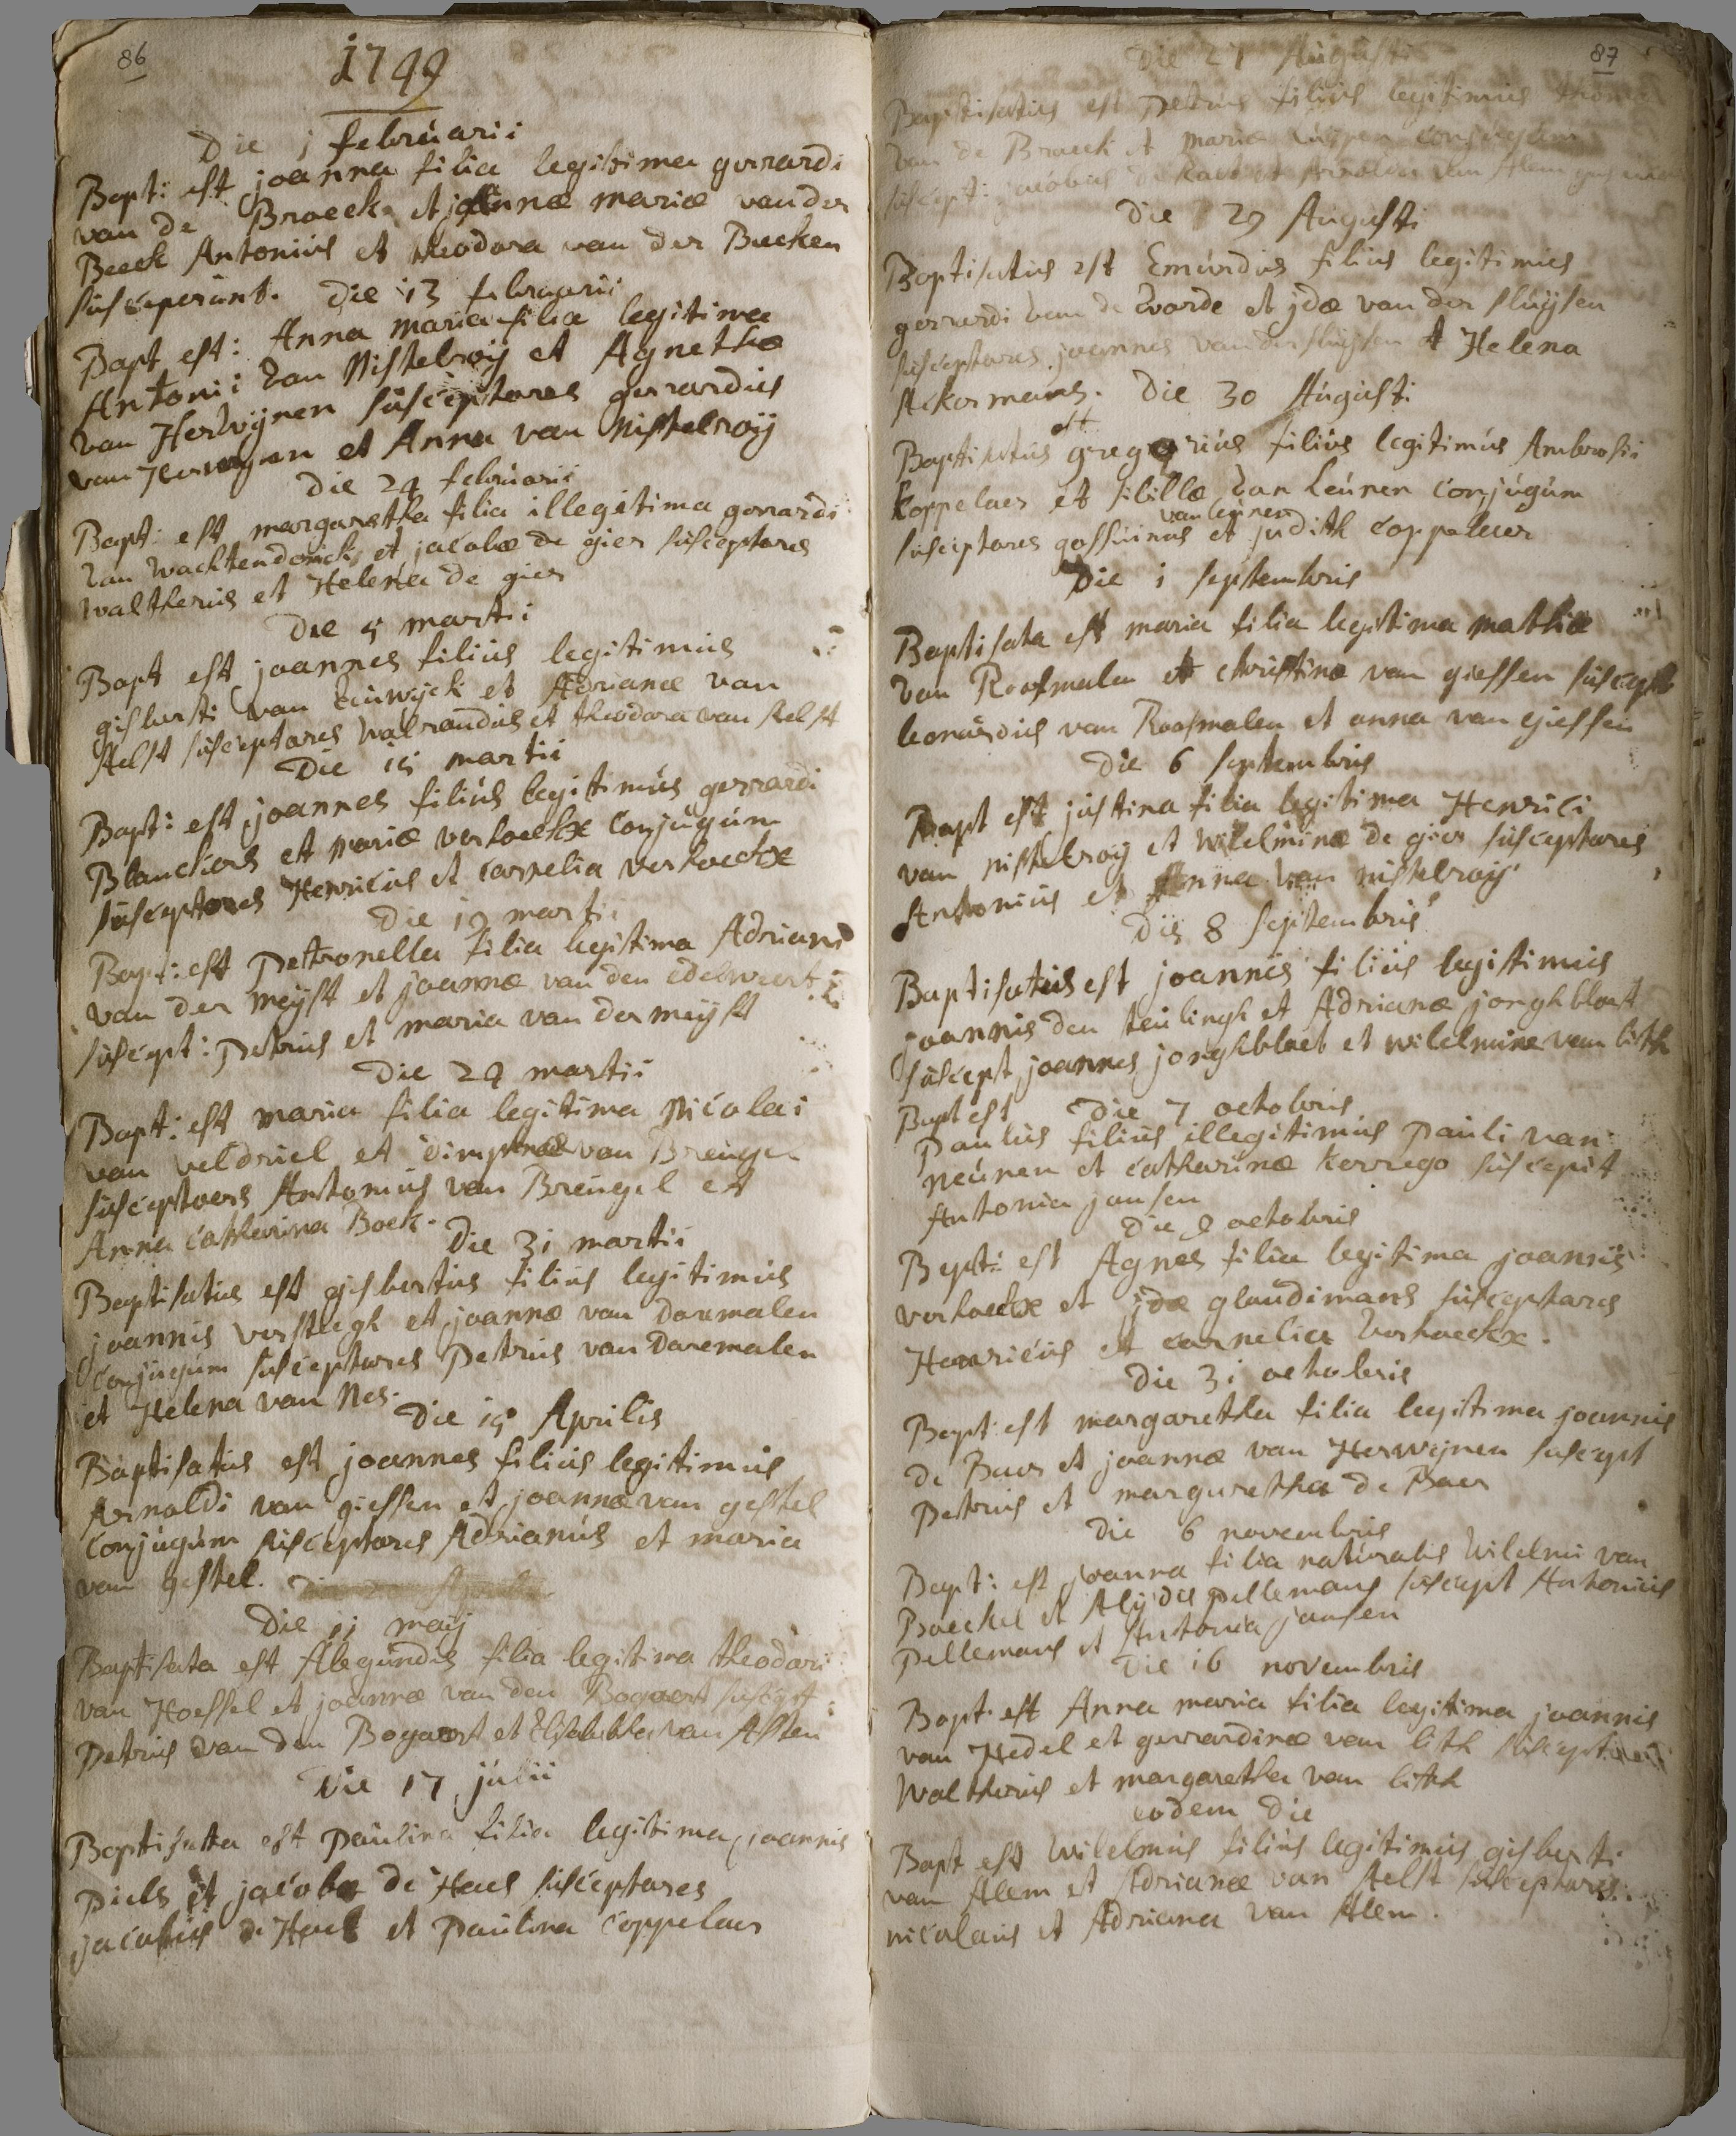 86
1749
Die 1 februarii
Bapt: est joanna filia legitima gerrardi
van de Broeck et joannæ mariæ van der
Beeck Antonius et theodora van der Beeken
susceperunt. Die 13 februarii
Bapt est: Anna maria filia legitima
Antonii van Nistelroij et Agnethæ
van Herwijnen susceptores gerrardus
van Herwijnen et Anna van Nistelroij
Die 24 februarii
Bapt: est margaretha filia illegitima gerrardi
van wachtendonck et jacobæ de gier susceptores
waltherus et Helena de gier
Die 5 martii
Bapt est joannes filius legitimus
gisberti van Euwijck et Adrianæ van
Aelst susceptores walrandus et theodora van Aelst
Die 15 martii
Bapt: est joannes filius legitimus gerrardi
Blanckers et mariæ verhoeckx conjugum
susceptores Henricus et cornelia verhoeckx
Die 19 martii
Bapt: est Petronella filia legitima Adriani
van der meijst et joannæ van den edelweert
suscept: Petrus et maria van der meijst
Die 24 martii
Bapt: est maria filia legitima Nicolai
van veldriel et dimpnæ van Breugel
susceptores Antonius van Breugel et
Anna catharina Boek. Die 31 martii
Baptisatus est gisbertus filius legitimus
joannis versteegh et joannæ van Doremalen
conjugum susceptores Petrus van Doremalen
et Helena van Nes. Die 15 Aprilis
Baptisatus est joannes filius legitimus
Arnoldi van giessen et joannæ van gestel
conjugum susceptores Adrianus et maria
van gestel.
Die 11 maij
Baptisata est Alegundis filia legitima theodori
van Hoessel et joannæ van den Bogaert suscept:
Petrus van den Bogaert et Elisabetha van Assen
Die 17 julii
Baptisatta est Paulina filia legitima joannis
Piels et jacoba de Haes susceptores
jacobus de Haes et Paulina coppelaer
87
Die 27 Augusti
Baptisatus est Petrus filius legitimus thomæ
van de Broeck et mariæ conjugum
suscept: jacobus et van Alem
Die 29 Augusti
Baptisatus est Emundus filius legitimus
gerrardi van de worde et jdæ van der sluijsen
susceptores joannes van der sluijsen et Helena
Ackermans. Die 30 Augusti
est
Baptisatus gregorius filius legitimus Ambrosii
koppelaer et sibillæ van Leunen conjugum
van leunen
susceptores gossuinus et judith coppelaer
Die 1 septembris
Baptisata est maria filia legitima mathiæ
van Roosmalen et christinæ van giessen suscept
leonardus van Roosmalen et anna van giessen
Die 6 septembris
Bapt est justina filia legitima Henrici
van nistelroij et wilelminæ de gier susceptores
Antonius et Anna van nistelroij
Die 8 septembris
Baptisatus est joannes filius legitimus
joannis den teulingh et Adrianæ jonghbloet
suscept joannes jonghbloet et wilelmina van lith
Bapt est Die 7 octobris
Paulus filius illegitimus Pauli van
neunen et catharinæ kerrego suscepit
Antonia jansen
Die 9 octobris
Bapt: est Agnes filia legitima joannis
verhoeckx et jdæ glaudimans susceptores
Henricus et cornelia verhoeckx.
Die 31 octobris
Bapt: est margaretha filia legitima joannis
de Baer et joannæ van Herwijnen suscept
Petrus et margaretha de Baer
Die 6 novembris
Bapt: est joanna filia naturalis Wilelmi van
Boeckel et Alijdis pellemans suscept Antonius
Pellemans et Antonia jansen
Die 16 novembris
Bapt. est Anna maria filia legitima joannis
van Hedel et gerrardinæ van lith susceptores
Waltherus et margaretha van lith
eodem Die
Bapt est Wilelmus filius legitimus gisberti
van Alem et Adrianæ van Aelst susceptores
nicolaus et Adriana van Alem.